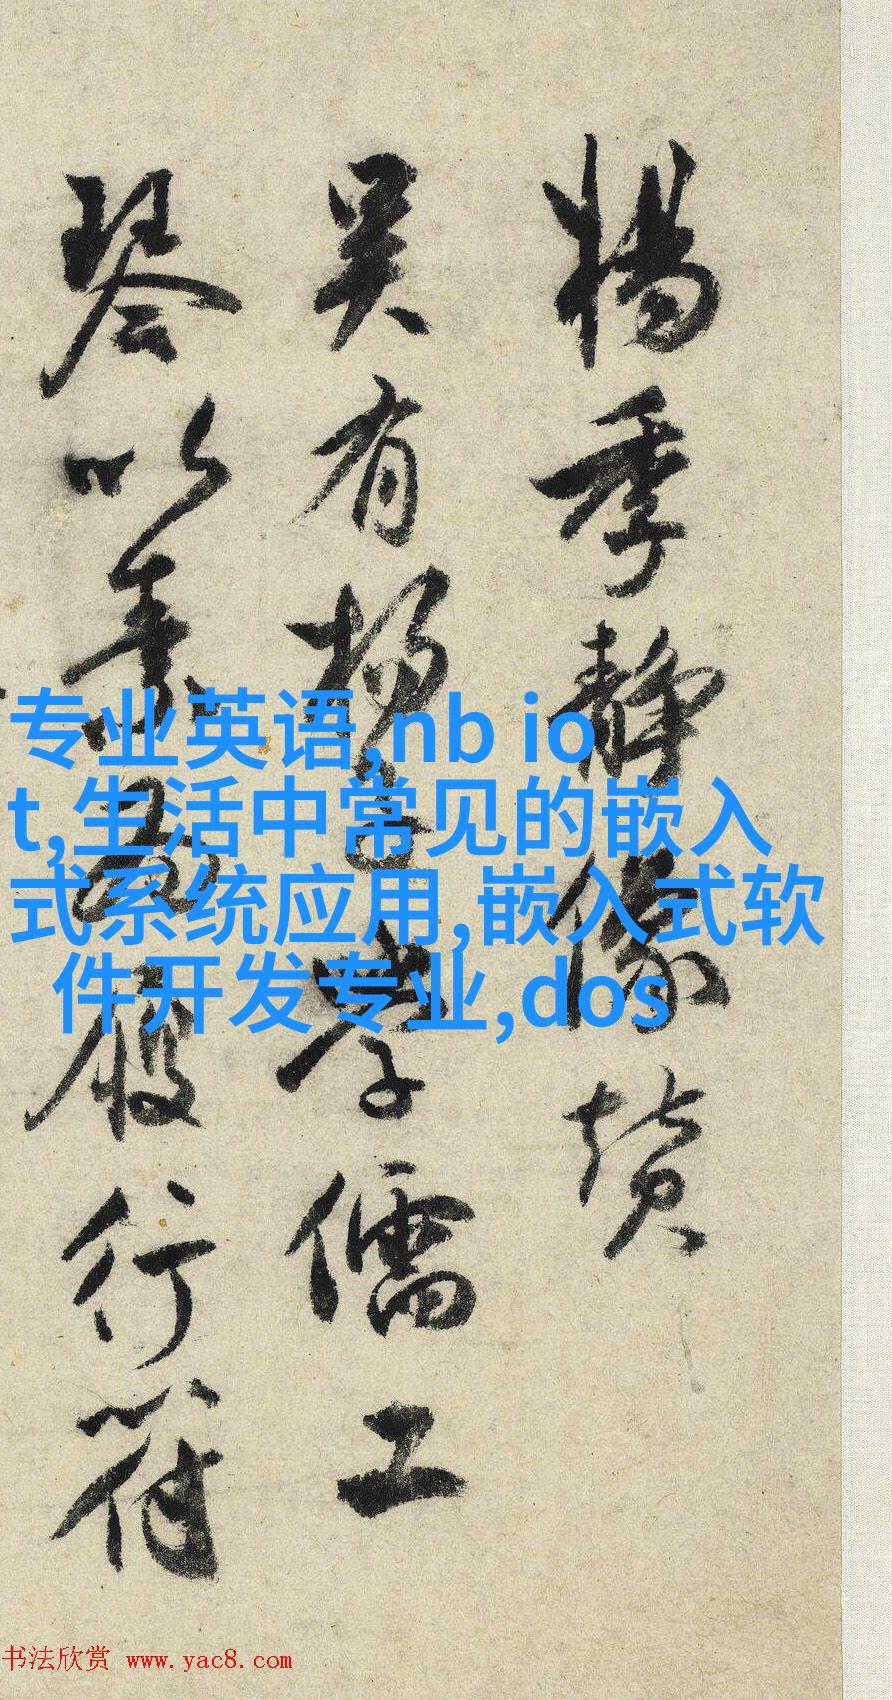 楊季静像贊
吴有楊季静儒工
琴以養品履行符
专业英语,nb io
t,生活中常见的嵌入
式系统应用,嵌入式软
件开发专业,dos
书法欣赏 www.yac8.com